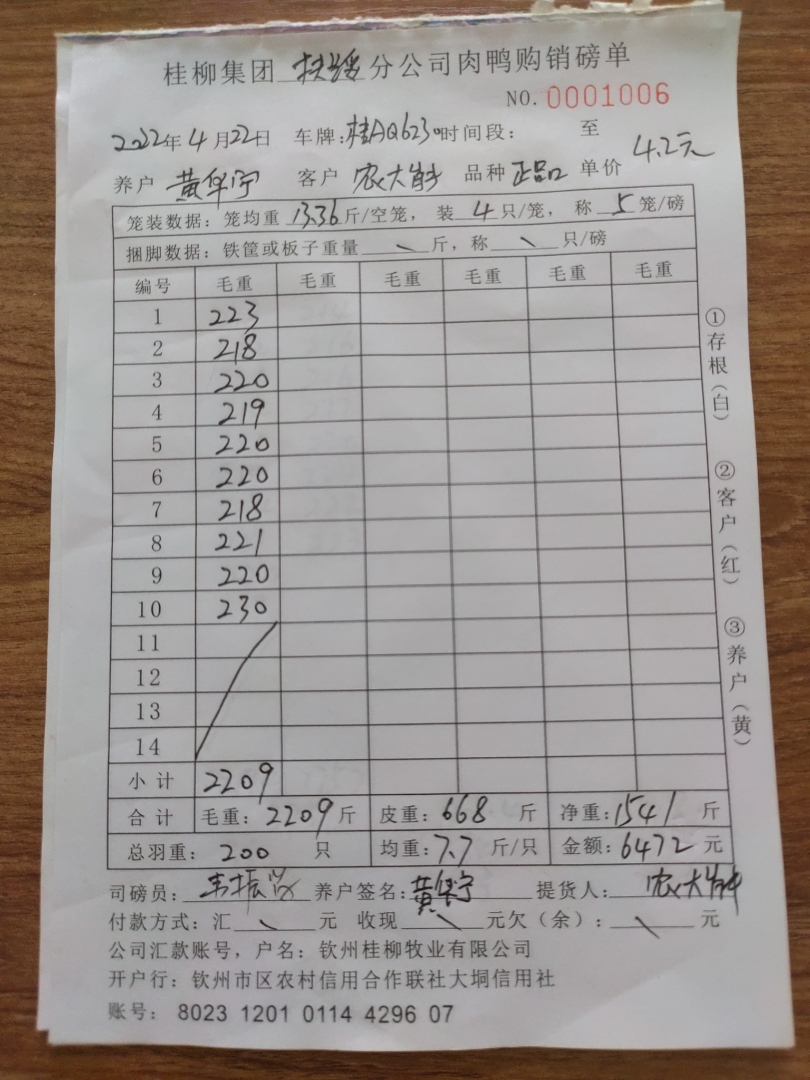 桂柳集团 扶绥 分公司肉鸭购销磅单
NO. 0001006
2022年4月22日 车牌:桂AQ6230 时间段: 至
养户 黄华宁 客户 农大 品种 正品 单价 4.2元
笼装数据: 笼均重 13.36 斤/空笼, 装 4 只/笼, 称 5 笼/磅
捆脚数据: 铁筐或板子重量 \ 斤, 称 \ 只/磅
编号 毛重 毛重 毛重 毛重 毛重 毛重
1 223
2 218
3 220
4 219
5 220
6 220
7 218
8 221
9 220
10 230
11
12
13
14
小计 2209
合计 毛重: 2209 斤 皮重: 668 斤 净重: 1541 斤
总羽重: 200 只 均重: 7.7 斤/只 金额: 6472 元
司磅员: 韦振 养户签名: 黄华宁 提货人: 农大
付款方式: 汇 \ 元 收现 \ 元欠(余): \ 元
公司汇款账号, 户名: 钦州桂柳牧业有限公司
开户行: 钦州市区农村信用合作联社大垌信用社
账号: 8023 1201 0114 4296 07
①存根(白) ②客户(红) ③养户(黄)